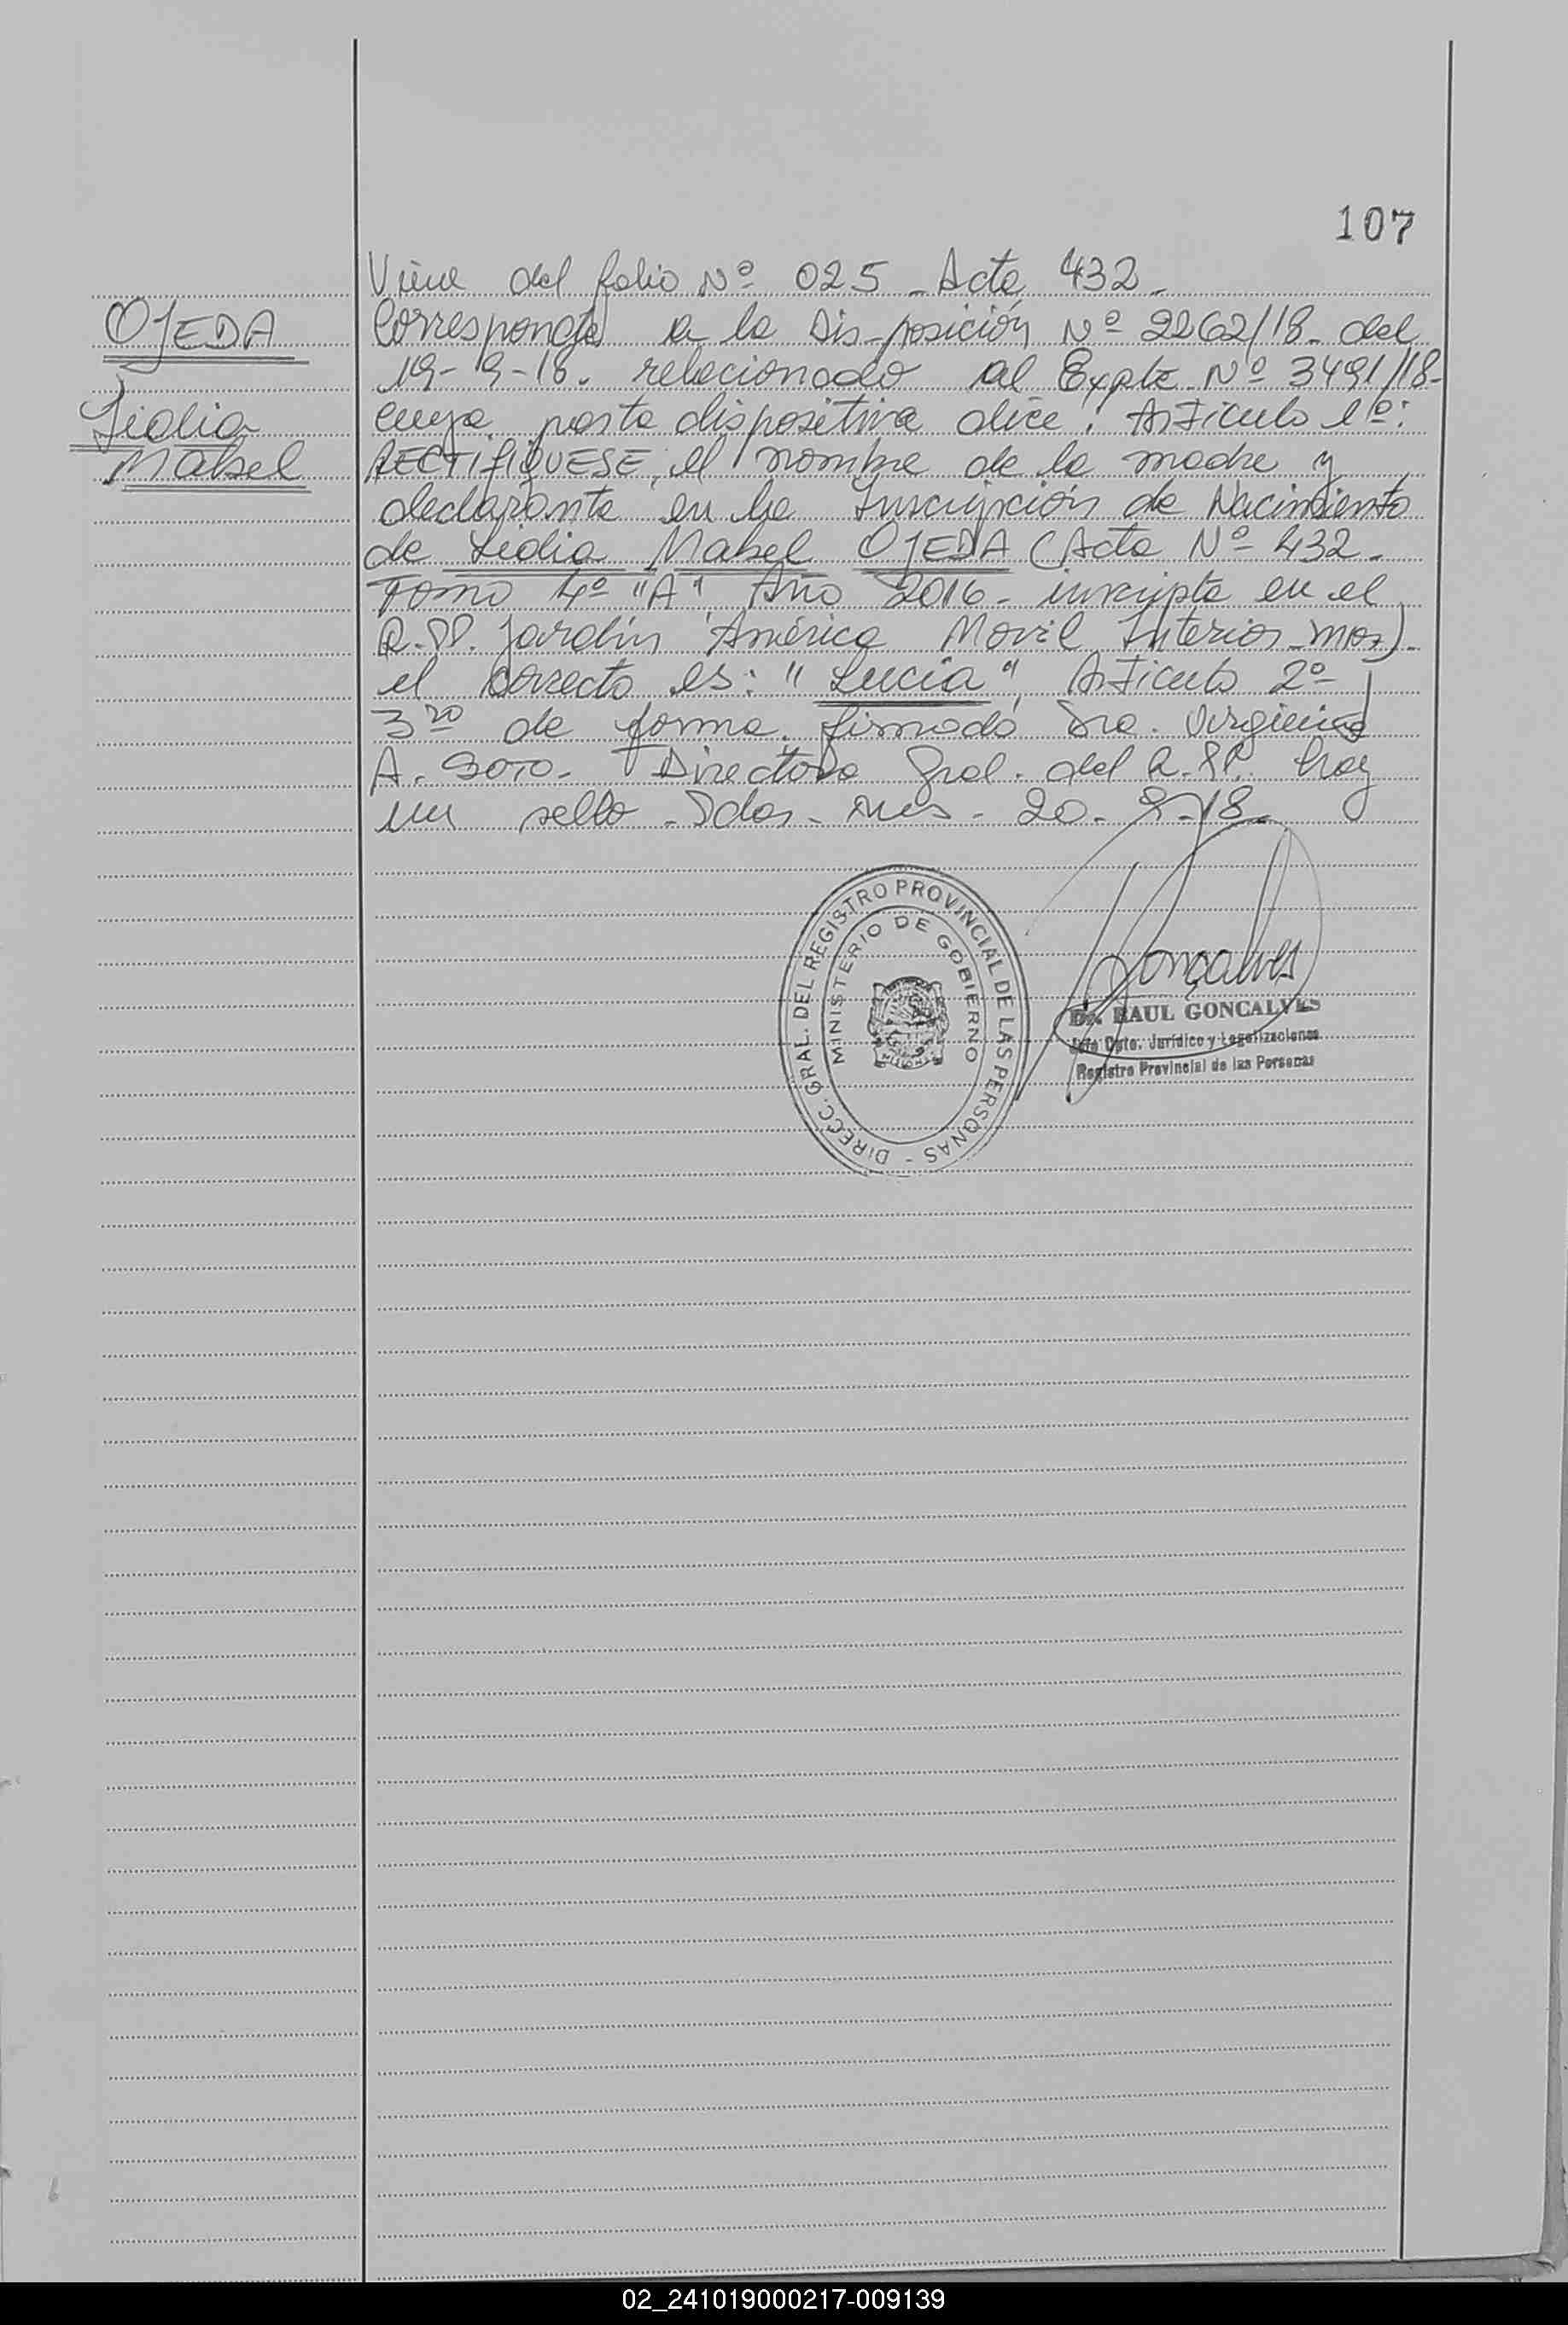 107
Viene del folio Nº 025 - Acta 432 -
OJEDA
Lidia
Mabel
Corresponde a la Disposición Nº 2262/18 - del
19-9-18. relacionado al Expte Nº 3491/18-
cuya parte dispositiva dice: Artículo 1º:
RECTIFIQUESE, el nombre de la madre y
declarante en la Inscripción de Nacimiento
de Lidia Mabel OJEDA (Acta Nº 432 -
Tomo 4º "A" Año 2016 - inscripta en el
R.PP. Jardín América Movil Interior - Mnes)
el correcto es: "Lucía" Artículo 2º
3ro de forma. firmado Dra. Virginia
A. Soto - Directora Gral. del R.PP. hay
un sello - Pdas - Mnes - 20 - 9 - 18 -
DIRECC. GRAL. DEL REGISTRO PROVINCIAL DE LAS PERSONAS -
MINISTERIO DE GOBIERNO
MISIONES
Gonçalves
Dr. RAUL GONCALVES
Jefe Dpto. Jurídico y Legalizaciones
Registro Provincial de las Personas
02_241019000217-009139